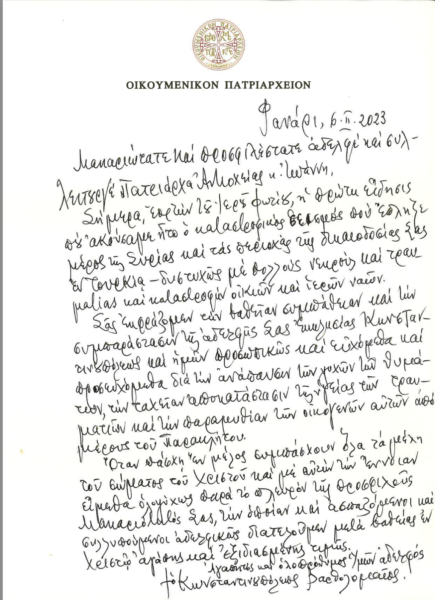 ΟΙΚΟΥΜΕΝΙΚΟΝ ΠΑΤΡΙΑΡΧΕΙΟΝ
Φανάρι, 6.ΙΙ.2023
Μακαριώτατε καὶ προσφιλέστατε ἀδελφὲ καὶ συλ-
λειτουργέ Πατριάρχα Ἀντιοχείας κ. Ἰωάννη,
Σήμερα, ἑορτὴν τοῦ Ἱεροῦ Φωτίου, ἡ πρώτη εἴδησις
ποὺ ἀκούσαμε ἦτο ὁ καταστροφικὸς σεισμὸς ποὺ ἔπληξε
μέρος τῆς Συρίας καὶ τὰς περιοχὰς τῆς δικαιοδοσίας Σας
ἐν Τουρκίᾳ - δυστυχῶς μὲ πολλοὺς νεκροὺς καὶ τραυ-
ματίας καὶ καταστροφὴν οἰκιῶν καὶ ἱερῶν ναῶν.
Σᾶς ἐκφράζομεν τὴν βαθεῖαν συμπάθειαν καὶ τὴν
συμπαράστασιν τῆς ἀδελφῆς Σας Ἐκκλησίας Κωνσταν-
τινουπόλεως καὶ ἡμῶν προσωπικῶς καὶ εὐχόμεθα καὶ
προσευχόμεθα διὰ τὴν ἀνάπαυσιν τῶν ψυχῶν τῶν θυμά-
των, τὴν ταχεῖαν ἀποκατάστασιν τῆς ὑγείας τῶν τραυ-
ματιῶν καὶ τὴν παραμυθίαν τῶν οἰκογενῶν αὐτῶν ἀπὸ
μέρους τοῦ Παρακλήτου.
Ὅταν πάσχῃ ἓν μέλος συμπάσχουν ὅλα τὰ μέλη
τοῦ σώματος τοῦ Χριστοῦ καὶ μὲ αὐτὴν τὴν ἔννοιαν
εἴμεθα ὁλοψύχως παρὰ τὸ πλευρὸν τῆς προσφιλοῦς
Μακαριότητός Σας, τὴν ὁποίαν καὶ ἀσπαζόμενοι καὶ
συλλυπούμενοι ἀδελφικῶς διατελοῦμεν μετὰ βαθείας ἐν
Χριστῷ ἀγάπης καὶ ἐξιδιασμένης τιμῆς.
Ἀγαπητὸς καὶ ὁλοπρόθυμος ἐν Χριστῷ ἀδελφὸς
† ὁ Κωνσταντινουπόλεως Βαρθολομαῖος.